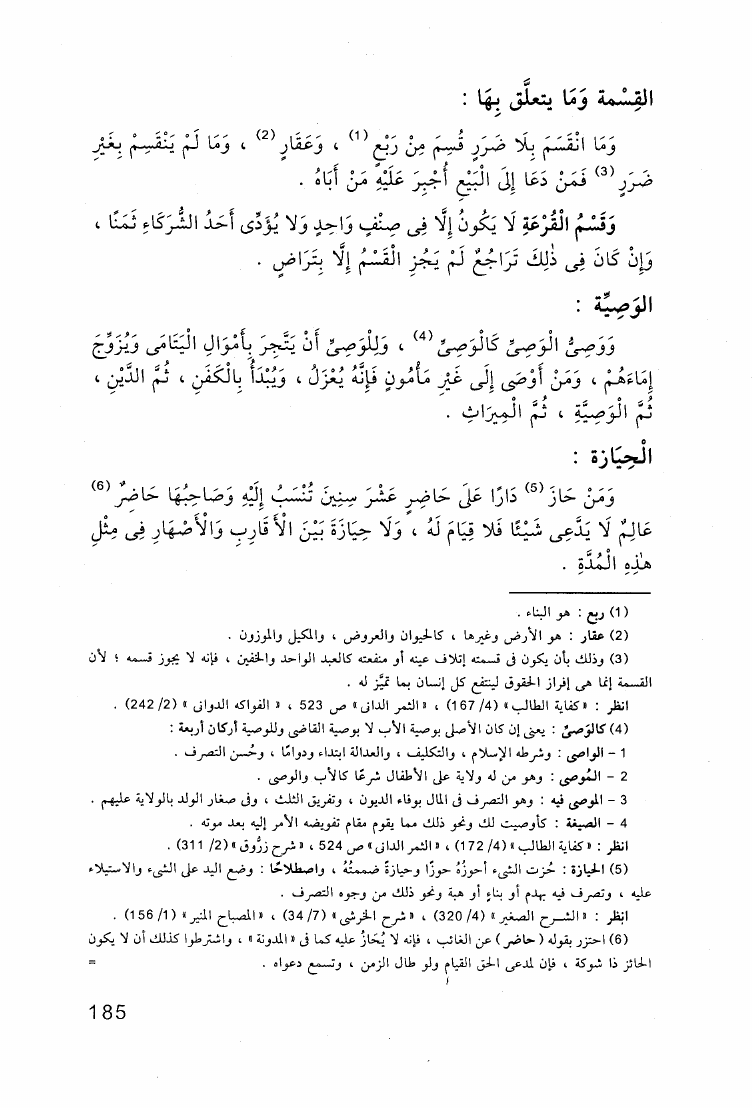 القِسْمة وَمَا يتعلَّق بِهَا :
وَمَا انْقَسَمَ بِلَا ضَرَرٍ قُسِمَ مِنْ رَبْعٍ (1) ، وَعَقَارٍ (2) ، وَمَا لَمْ يَنْقَسِمْ بِغَيْرِ
ضَرَرٍ (3) فَمَنْ دَعَا إِلَى الْبَيْعِ أُجْبِرَ عَلَيْهِ مَنْ أَبَاهُ .
وَقَسْمُ الْقُرْعَةِ لَا يَكُونُ إِلَّا فِى صِنْفٍ وَاحِدٍ وَلَا يُؤَدِّى أَحَدُ الشُّرَكَاءِ ثَمَنًا ،
وَإِنْ كَانَ فِى ذٰلِكَ تَرَاجُعٌ لَمْ يَجُزِ الْقَسْمُ إِلَّا بِتَرَاضٍ .
الوَصِيَّة :
وَوَصِىُّ الْوَصِىِّ كَالْوَصِىِّ (4) ، وَلِلْوَصِىِّ أَنْ يَتَّجِرَ بِأَمْوَالِ الْيَتَامَى وَيُزَوِّجَ
إِمَاءَهُمْ ، وَمَنْ أَوْصَى إِلَى غَيْرِ مَأْمُونٍ فَإِنَّهُ يُعْزَلُ ، وَيُبْدَأُ بِالْكَفَنِ ، ثُمَّ الدَّيْنِ ،
ثُمَّ الْوَصِيَّةِ ، ثُمَّ الْمِيرَاثِ .
الْحِيَازة :
وَمَنْ حَازَ (5) دَارًا عَلَى حَاضِرٍ عَشْرَ سِنِينَ تُنْسَبُ إِلَيْهِ وَصَاحِبُهَا حَاضِرٌ (6)
عَالِمٌ لَا يَدَّعِى شَيْئًا فَلا قِيَامَ لَهُ ، وَلَا حِيَازَةَ بَيْنَ الْأَقَارِبِ وَالْأَصْهَارِ فِى مِثْلِ
هٰذِهِ الْمُدَّةِ .
(1) ربع : هو البناء .
(2) عقار : هو الأرض وغيرها ، كالحيوان والعروض ، والمكيل والموزون .
(3) وذلك بأن يكون فى قسمته إتلاف عينه أو منفعته كالعبد الواحد والخفين ، فإنه لا يجوز قسمه ؛ لأن
القسمة إنما هى إفراز الحقوق لينتفع كل إنسان بما تميَّز له .
انظر : « كفاية الطالب » (4/ 167) ، « الثمر الدانى » ص 523 ، « الفواكه الدوانى » (2/ 242) .
(4) كالوَصىّ : يعنى إن كان الأصل بوصية الأب لا بوصية القاضى وللوصية أركان أربعة :
1 - الواصى : وشرطه الإسلام ، والتكليف ، والعدالة ابتداء ودوامًا ، وحُسن التصرف .
2 - المُوصى : وهو من له ولاية على الأطفال شرعًا كالأب والوصى .
3 - الموصى فيه : وهو التصرف فى المال بوفاء الديون ، وتفريق الثلث ، وفى صغار الولد بالولاية عليهم .
4 - الصيغة : كأوصيت لك ونحو ذلك مما يقوم مقام تفويضه الأمر إليه بعد موته .
انظر : « كفاية الطالب » (4/ 172) ، « الثمر الدانى » ص 524 ، « شرح زرُّوق » (2/ 311) .
(5) الحيازة : حُزت الشىء أحوزُهُ حوزًا وحيازةً ضممتُهُ ، واصطلاحًا : وضع اليد على الشىء والاستيلاء
عليه ، وتصرف فيه بهدم أو بناءٍ أو هبة ونحو ذلك من وجوه التصرف .
انظر : « الشـرح الصغير » (4/ 320) ، « شرح الخرشى » (7/ 34) ، « المصباح المنير » (1/ 156) .
(6) احترز بقوله ( حاضر ) عن الغائب ، فإنه لا يُحَازُ عليه كما فى « المدونة » ، واشترطوا كذلك أن لا يكون
الحائز ذا شوكة ، فإن لمدعى الحق القيام ولو طال الزمن ، وتسمع دعواه . =
185